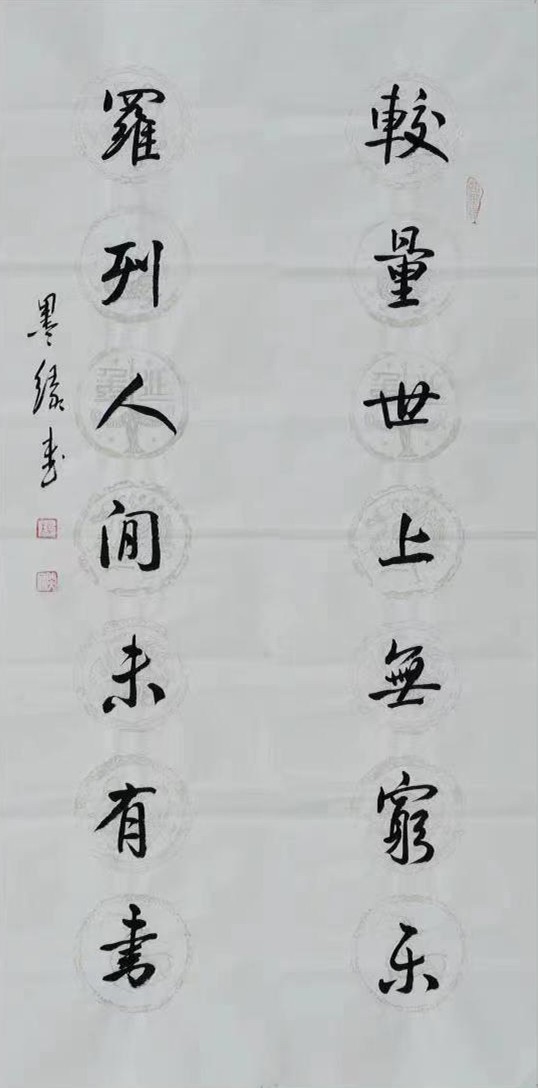 較量世上無窮乐
羅列人間未有書
墨缘书